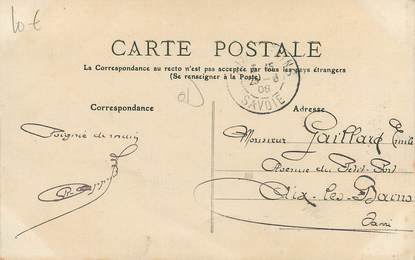 10 €
CARTE POSTALE
La Correspondance au recto n'est pas acceptée par tous les pays étrangers
(Se renseigner à la Poste)
SAVOIE
Correspondance
Adresse
Poignée de main
Monsieur Gaillard Emile
Avenue du Petit Port
Aix-les-Bains